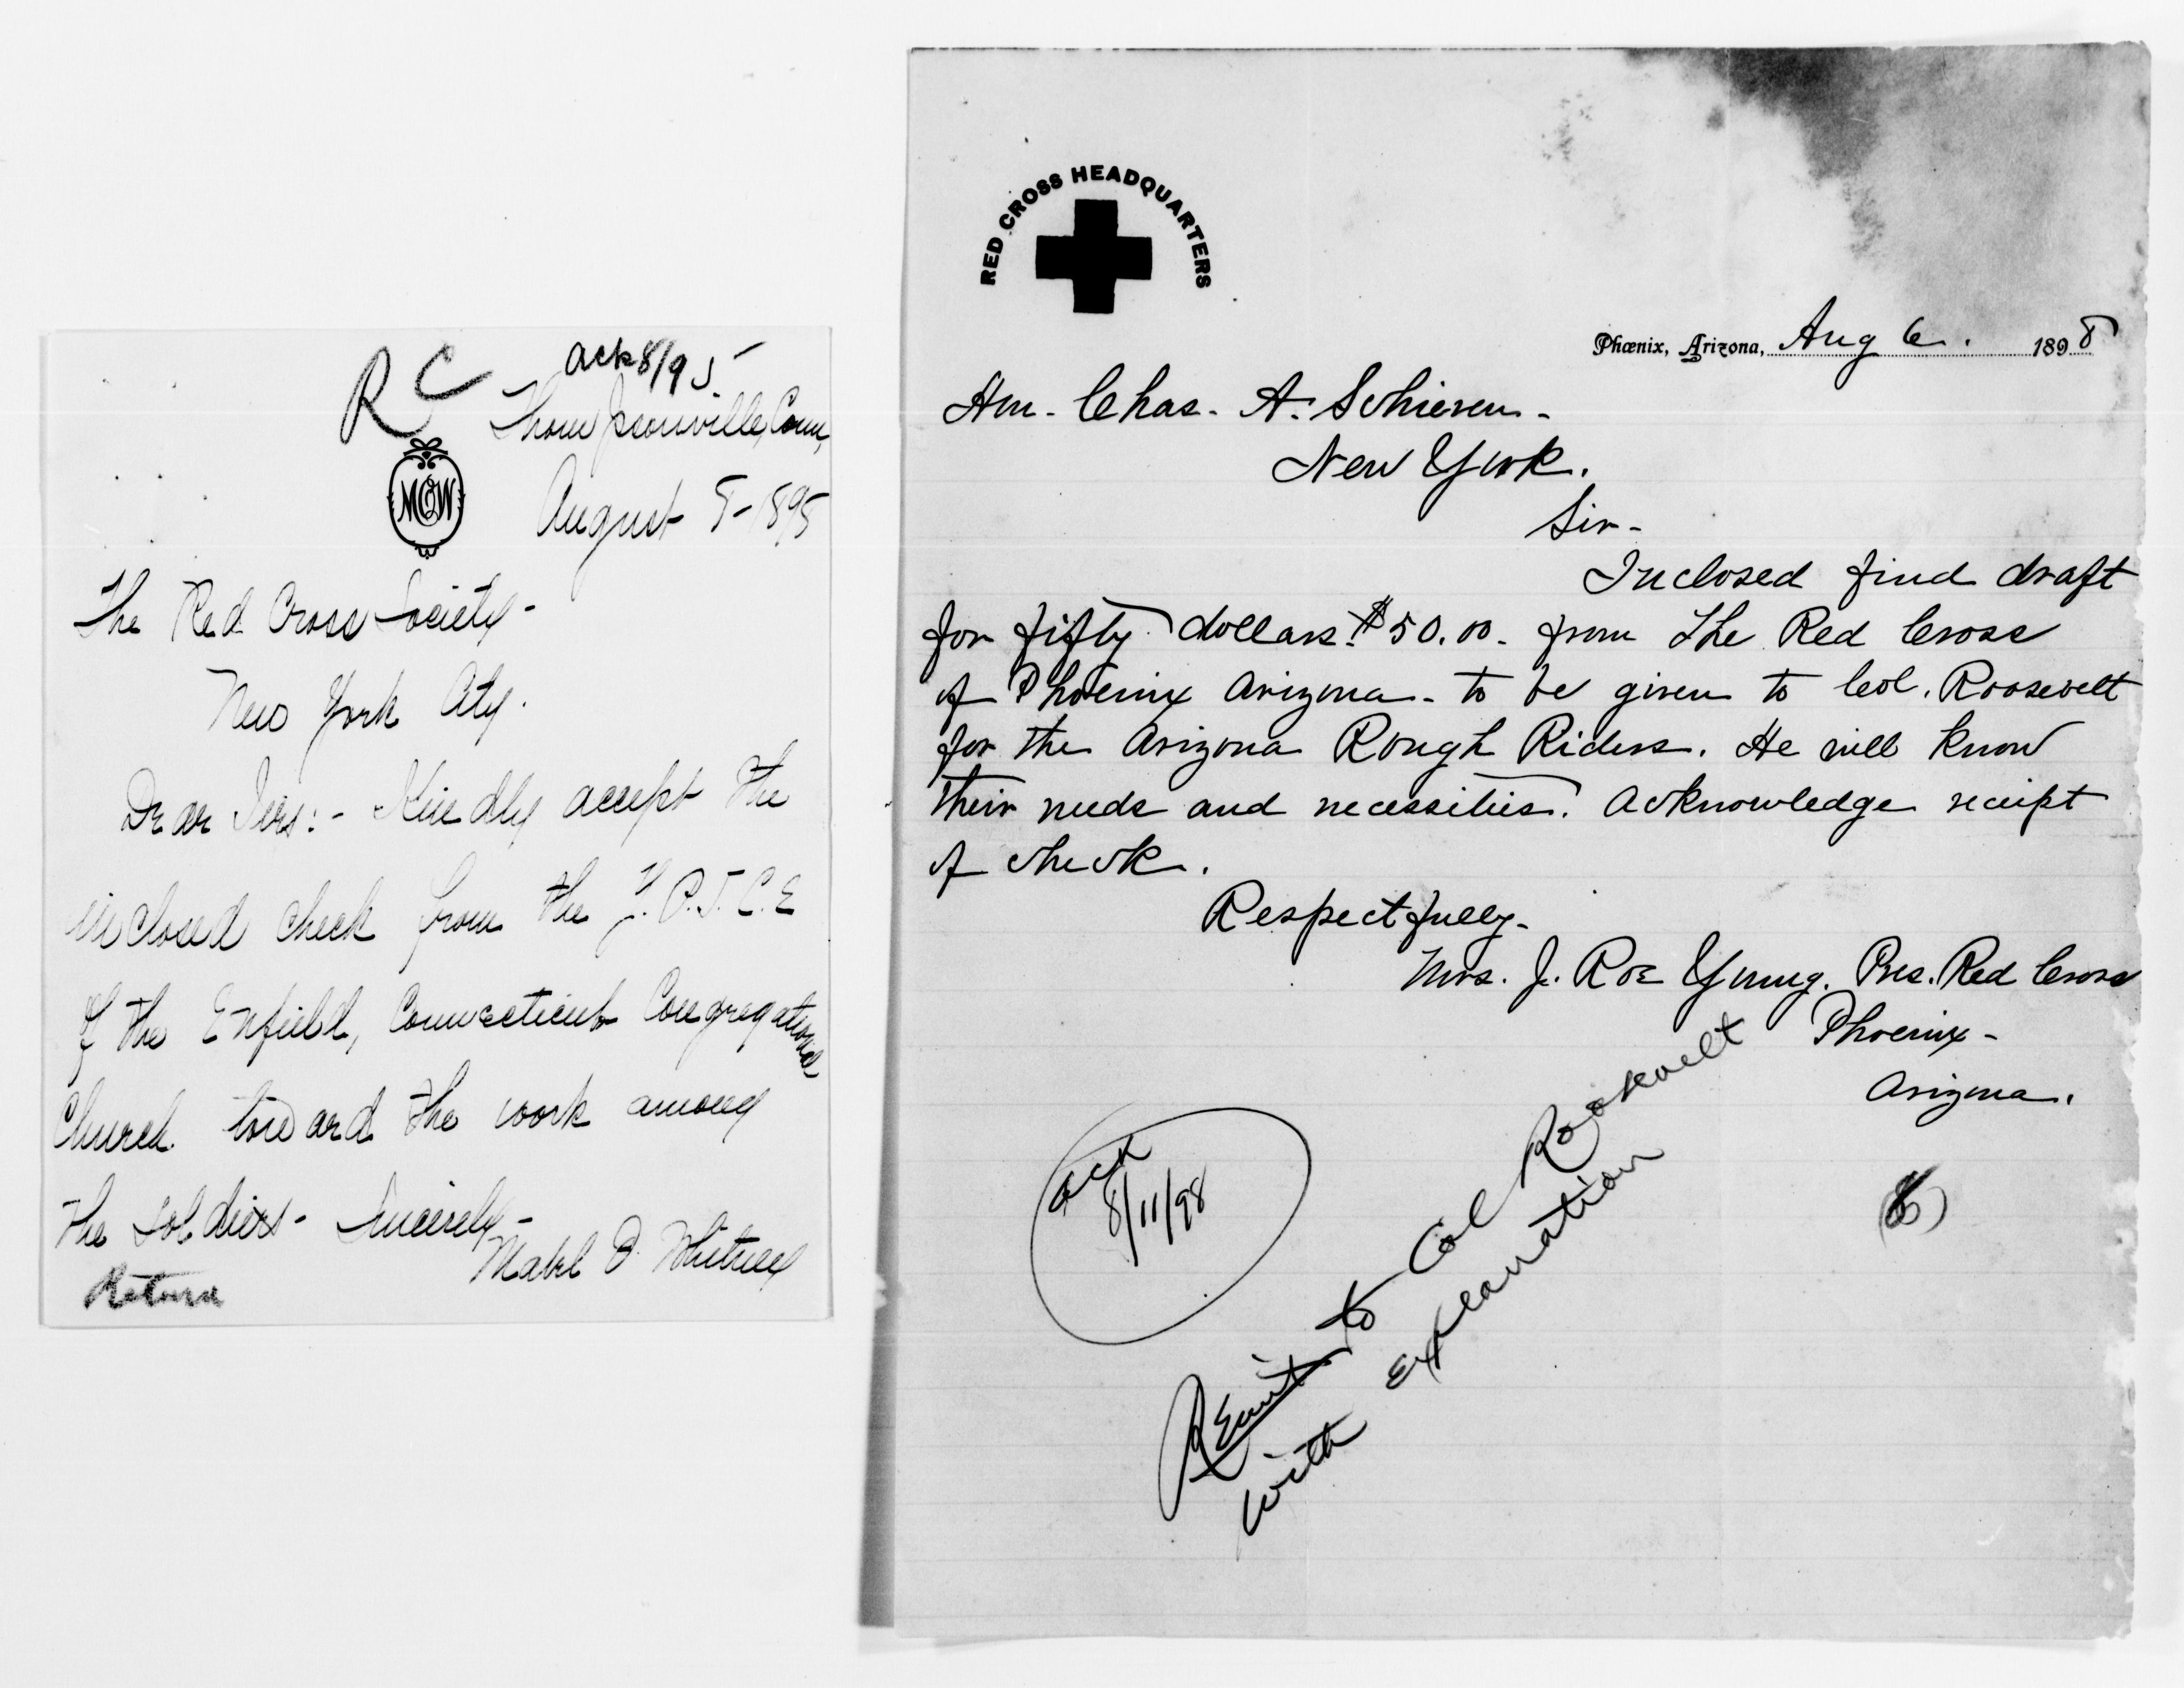 R C
ack 8/9 5-
Thompsonville, Conn,
MOW
August 5-1895
The Red Cross Society-
New York City.
Dear Sirs:- Kindly accept the
inclosed check from the Y.P.S.C.E
of the Enfield, Connecticut Congregational
Church toward the work among
the soldiers- Sincerely-
Mabel O. Whitney
Return
RED CROSS HEADQUARTERS
Phœnix, Arizona, Aug 6. 1898
Hon- Chas. A. Schieren-
New York.
Sir-
Inclosed find draft
for fifty dollars. $50.00- from The Red Cross
of Phoenix Arizona- to be given to Col. Roosevelt
for the Arizona Rough Riders. He will know
their needs and necessities. Acknowledge receipt
of check.
Respectfully-
Mrs. J. Roe Young. Pres. Red Cross
Phoenix-
Arizona.
ack
8/11/98
Remit to Col Roosevelt
with explanation